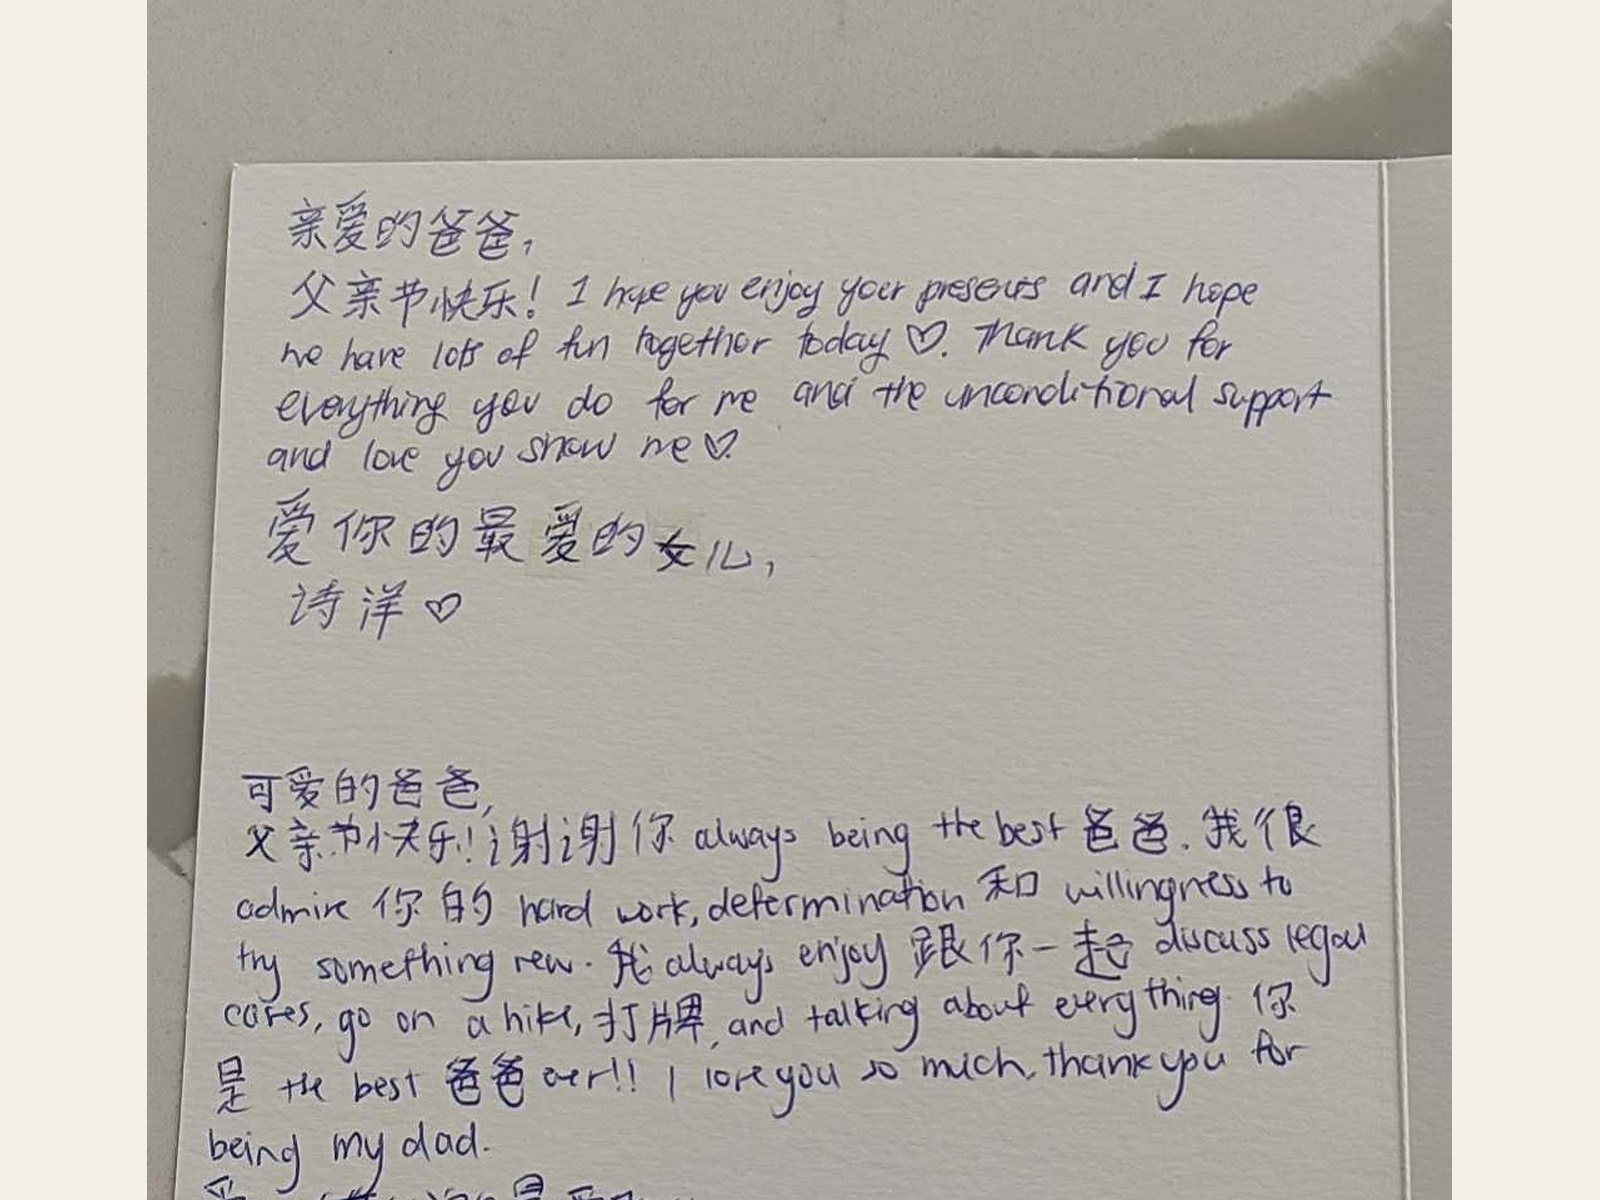 亲爱的爸爸,
父亲节快乐! I hope you enjoy your presents and I hope
we have lots of fun together today ♡. Thank you for
everything you do for me and the unconditional support
and love you show me ♡.
爱你的最爱的女儿,
诗洋 ♡
可爱的爸爸,
父亲节快乐! 谢谢你 always being the best 爸爸. 我很
admire 你的 hard work, determination 和 willingness to
try something new. 我 always enjoy 跟你一起 discuss legal
cases, go on a hike, 打牌, and talking about everything. 你
是 the best 爸爸 ever!! I love you so much, thank you for
being my dad.